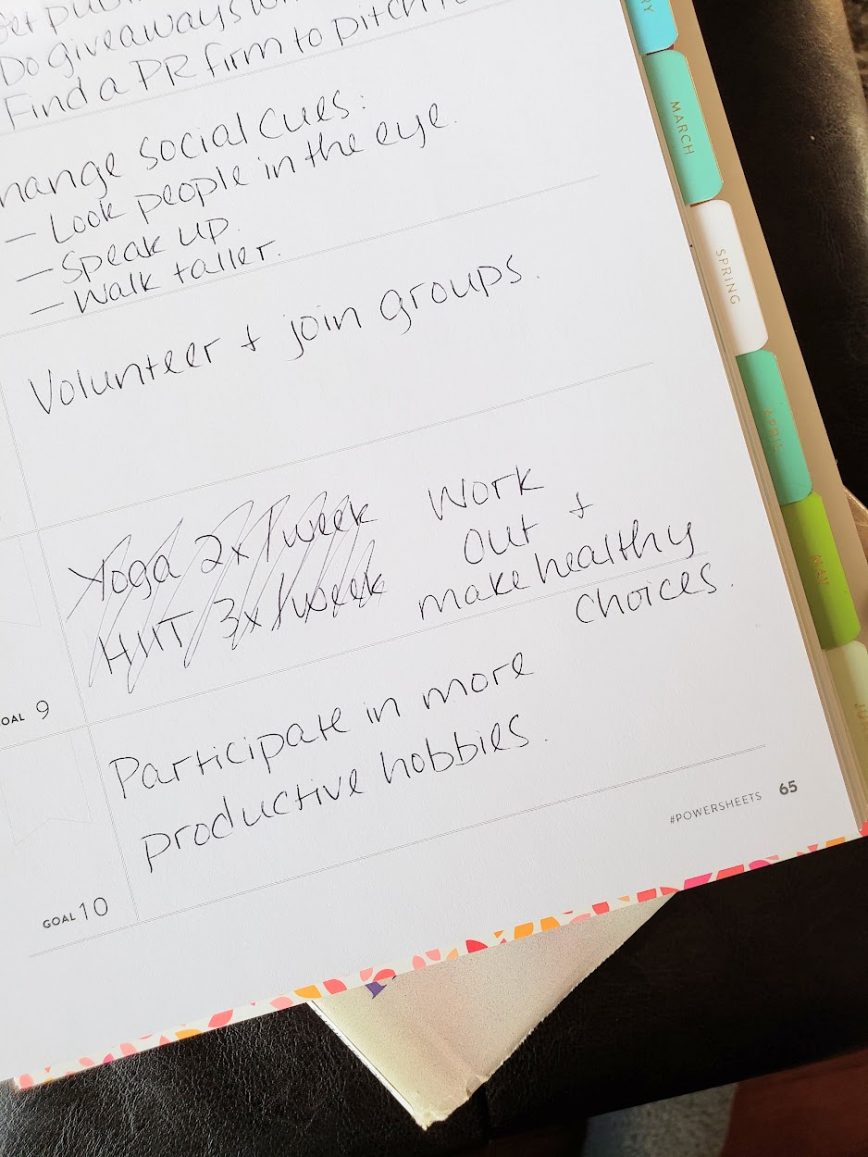 Do giveaways
Find a PR firm to pitch
hange social cues:
— Look people in the eye.
— Speak up.
— Walk taller.
Volunteer + join groups.
Yoga 2x/week
HIIT 3x/week
Work
out +
make healthy
choices.
GOAL 9
Participate in more
productive hobbies.
GOAL 10
#POWERSHEETS 65
MARCH
SPRING
APRIL
MAY